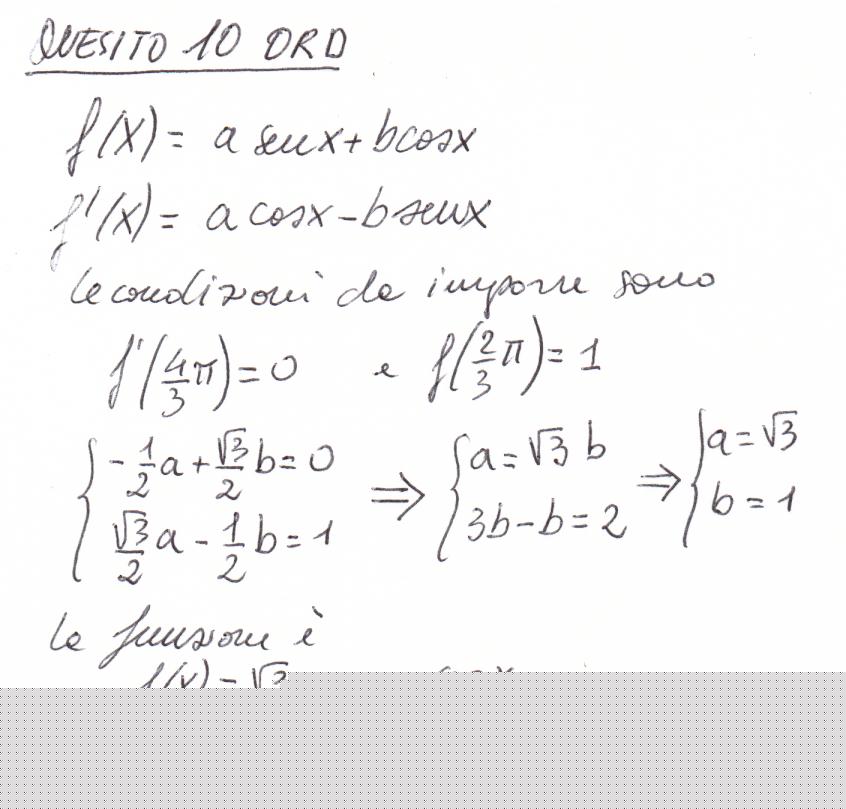 QUESITO 10 ORD
f(x) = a senx + b cosx
f'(x) = a cosx - b senx
le condizioni da imporre sono
f'(4/3 π) = 0 e f(2/3 π) = 1
{ -1/2 a + √3/2 b = 0 ⇒ { a = √3 b ⇒ { a = √3
{ √3/2 a - 1/2 b = 1 { 3b - b = 2 { b = 1
la funzione è
f(x) = √3